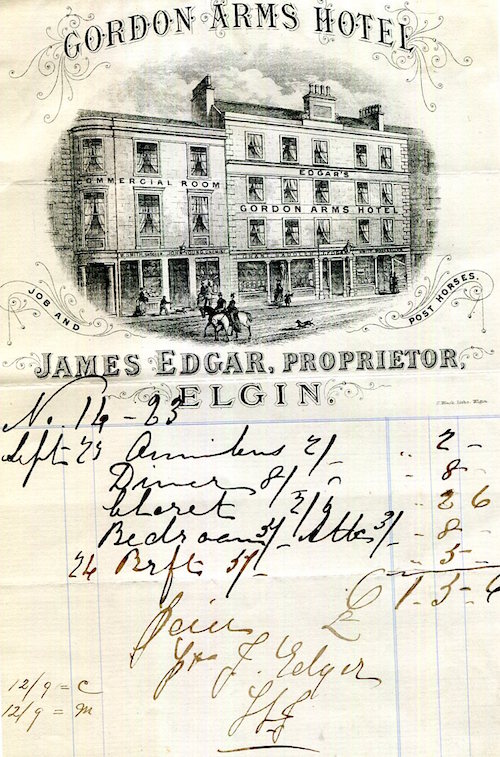 GORDON ARMS HOTEL
COMMERCIAL ROOM
EDGAR'S
GORDON ARMS HOTEL
JOB AND
POST HORSES.
JAMES EDGAR, PROPRIETOR,
ELGIN.
No. 14 - 23
Sept 23 Omnibus 2/- " 2 -
Dinner 8/- " 8 -
Claret 2/6 " 2 6
Bedroom 5/- Attce 3/- - 8 -
24 Brft 5/- - 5 -
£ 1-5-6
J. Edgar
12/9 = C
12/9 = M